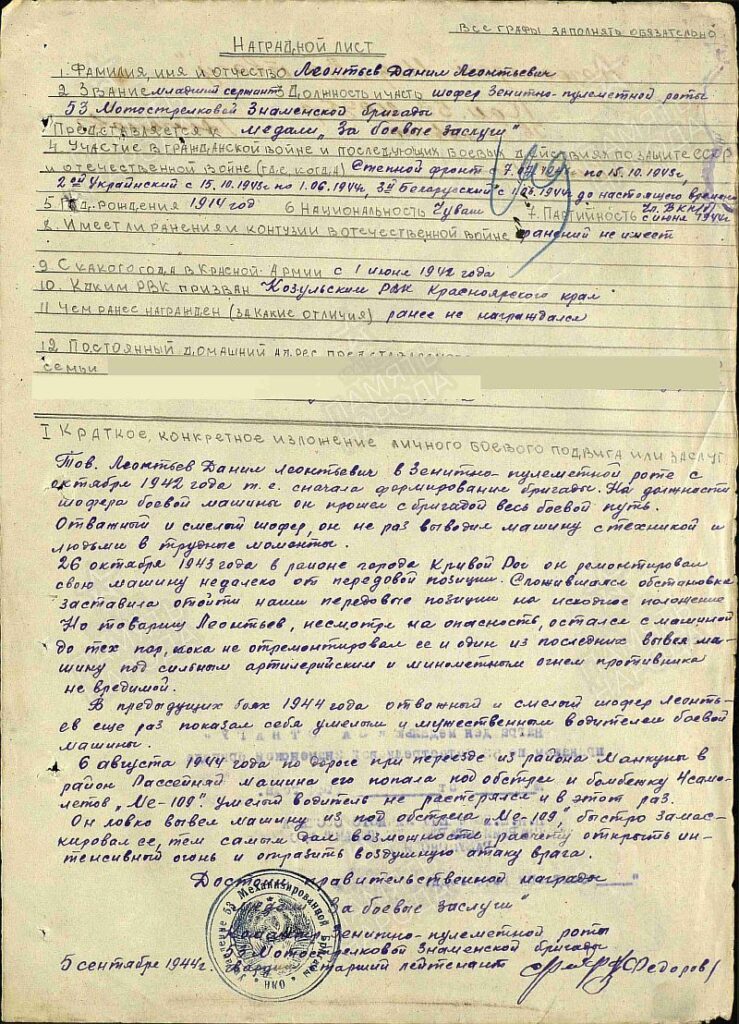 Все графы заполнять обязательно
Наградной лист
1. Фамилия, имя и отчество Леонтьев Данил Леонтьевич
2 Звание младший сержант 3 Должность и часть шофер Зенитно-пулеметной роты
53 Мотострелковой Знаменской бригады
Представляется к медали „За боевые заслуги"
4 Участие в гражданской войне и последующих боевых действиях по защите СССР
и отечественной войне (где, когда) Степной фронт по 15.10.1943г,
2ой Украинский с 15.10.1943г по 1.06.1944г, 3й Белорусский с 1.06.1944г до настоящего времени
5 Год рождения 1914 год 6 Национальность Чуваш 7. Партийность Чл. ВКП(б) с июня 1944г
8. Имеет ли ранения и контузии в отечественной войне ранений не имеет
9 С какого года в Красной Армии с 1 июня 1942 года
10. Каким РВК призван Козульским РВК Красноярского края
11 Чем ранее награжден (за какие отличия) ранее не награждался
12 Постоянный домашний адрес
семьи
I Краткое, конкретное изложение личного боевого подвига или заслуг
Тов. Леонтьев Данил Леонтьевич в Зенитно-пулеметной роте с
октября 1942 года т.е. сначала формирование бригады. На должности
шофера боевой машины он прошел с бригадой весь боевой путь.
Отважный и смелый шофер, он не раз выводил машину с техникой и
людьми в трудные моменты.
26 октября 1943 года в районе города Кривой Рог он ремонтировал
свою машину недалеко от передовой позиции. Сложившаяся обстановка
заставила отойти наши передовые позиции на исходное положение
Но товарищ Леонтьев, несмотря на опасность, остался с машиной
до тех пор, пока не отремонтировал ее и один из последних вывел ма-
шину под сильным артилерийским и минометным огнем противника
не вредимой.
В предыдущих боях 1944 года отважный и смелый шофер Леонть-
ев еще раз показал себя умелым и мужественным водителем боевой
машины.
6 августа 1944 года по дороге при переезде из района Манкуны в
район Рассейняй машина его попала под обстрел и бомбежку 4 само-
летов „Ме-109". Умелый водитель не растерялся и в этот раз.
Он ловко вывел машину из под обстрела „Ме-109", быстро замас-
кировал ее, тем самым дал возможность расчету открыть ин-
тенсивный огонь и отразить воздушную атаку врага.
Достоин правительственной награды
медали „За боевые заслуги"
Командир Зенитно-пулеметной роты
Мотострелковой Знаменской бригады
5 сентября 1944г. гвардии старший лейтенант (Федоров)
Управление 53 Механизированной Бригады
НКО